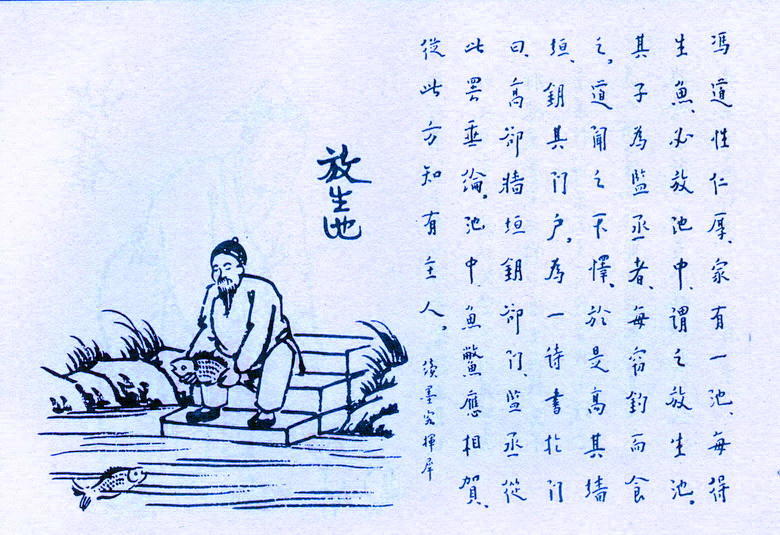 馮道性仁厚、家有一池、每得
生魚、必放池中、謂之放生池。
其子為監丞者、每窃釣而食
之。道聞之不懌、於是高其墙
垣、鈅其门户。為一诗書於门
曰、高卻墙垣鈅卻门、监丞從
此罢垂綸。池中魚鱉應相賀、
從此方知有主人。續墨客揮犀
放生池